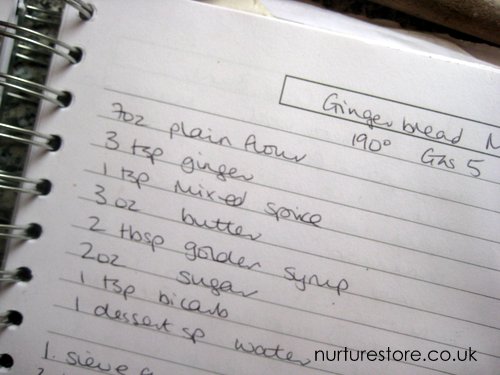 Gingerbread M
190° Gas 5
7oz plain flour
3 tsp ginger
1 tsp mixed spice
3 oz butter
2 tbsp golden syrup
2oz sugar
1 tsp bicarb
1 dessert sp water
1. sieve
nurturestore.co.uk